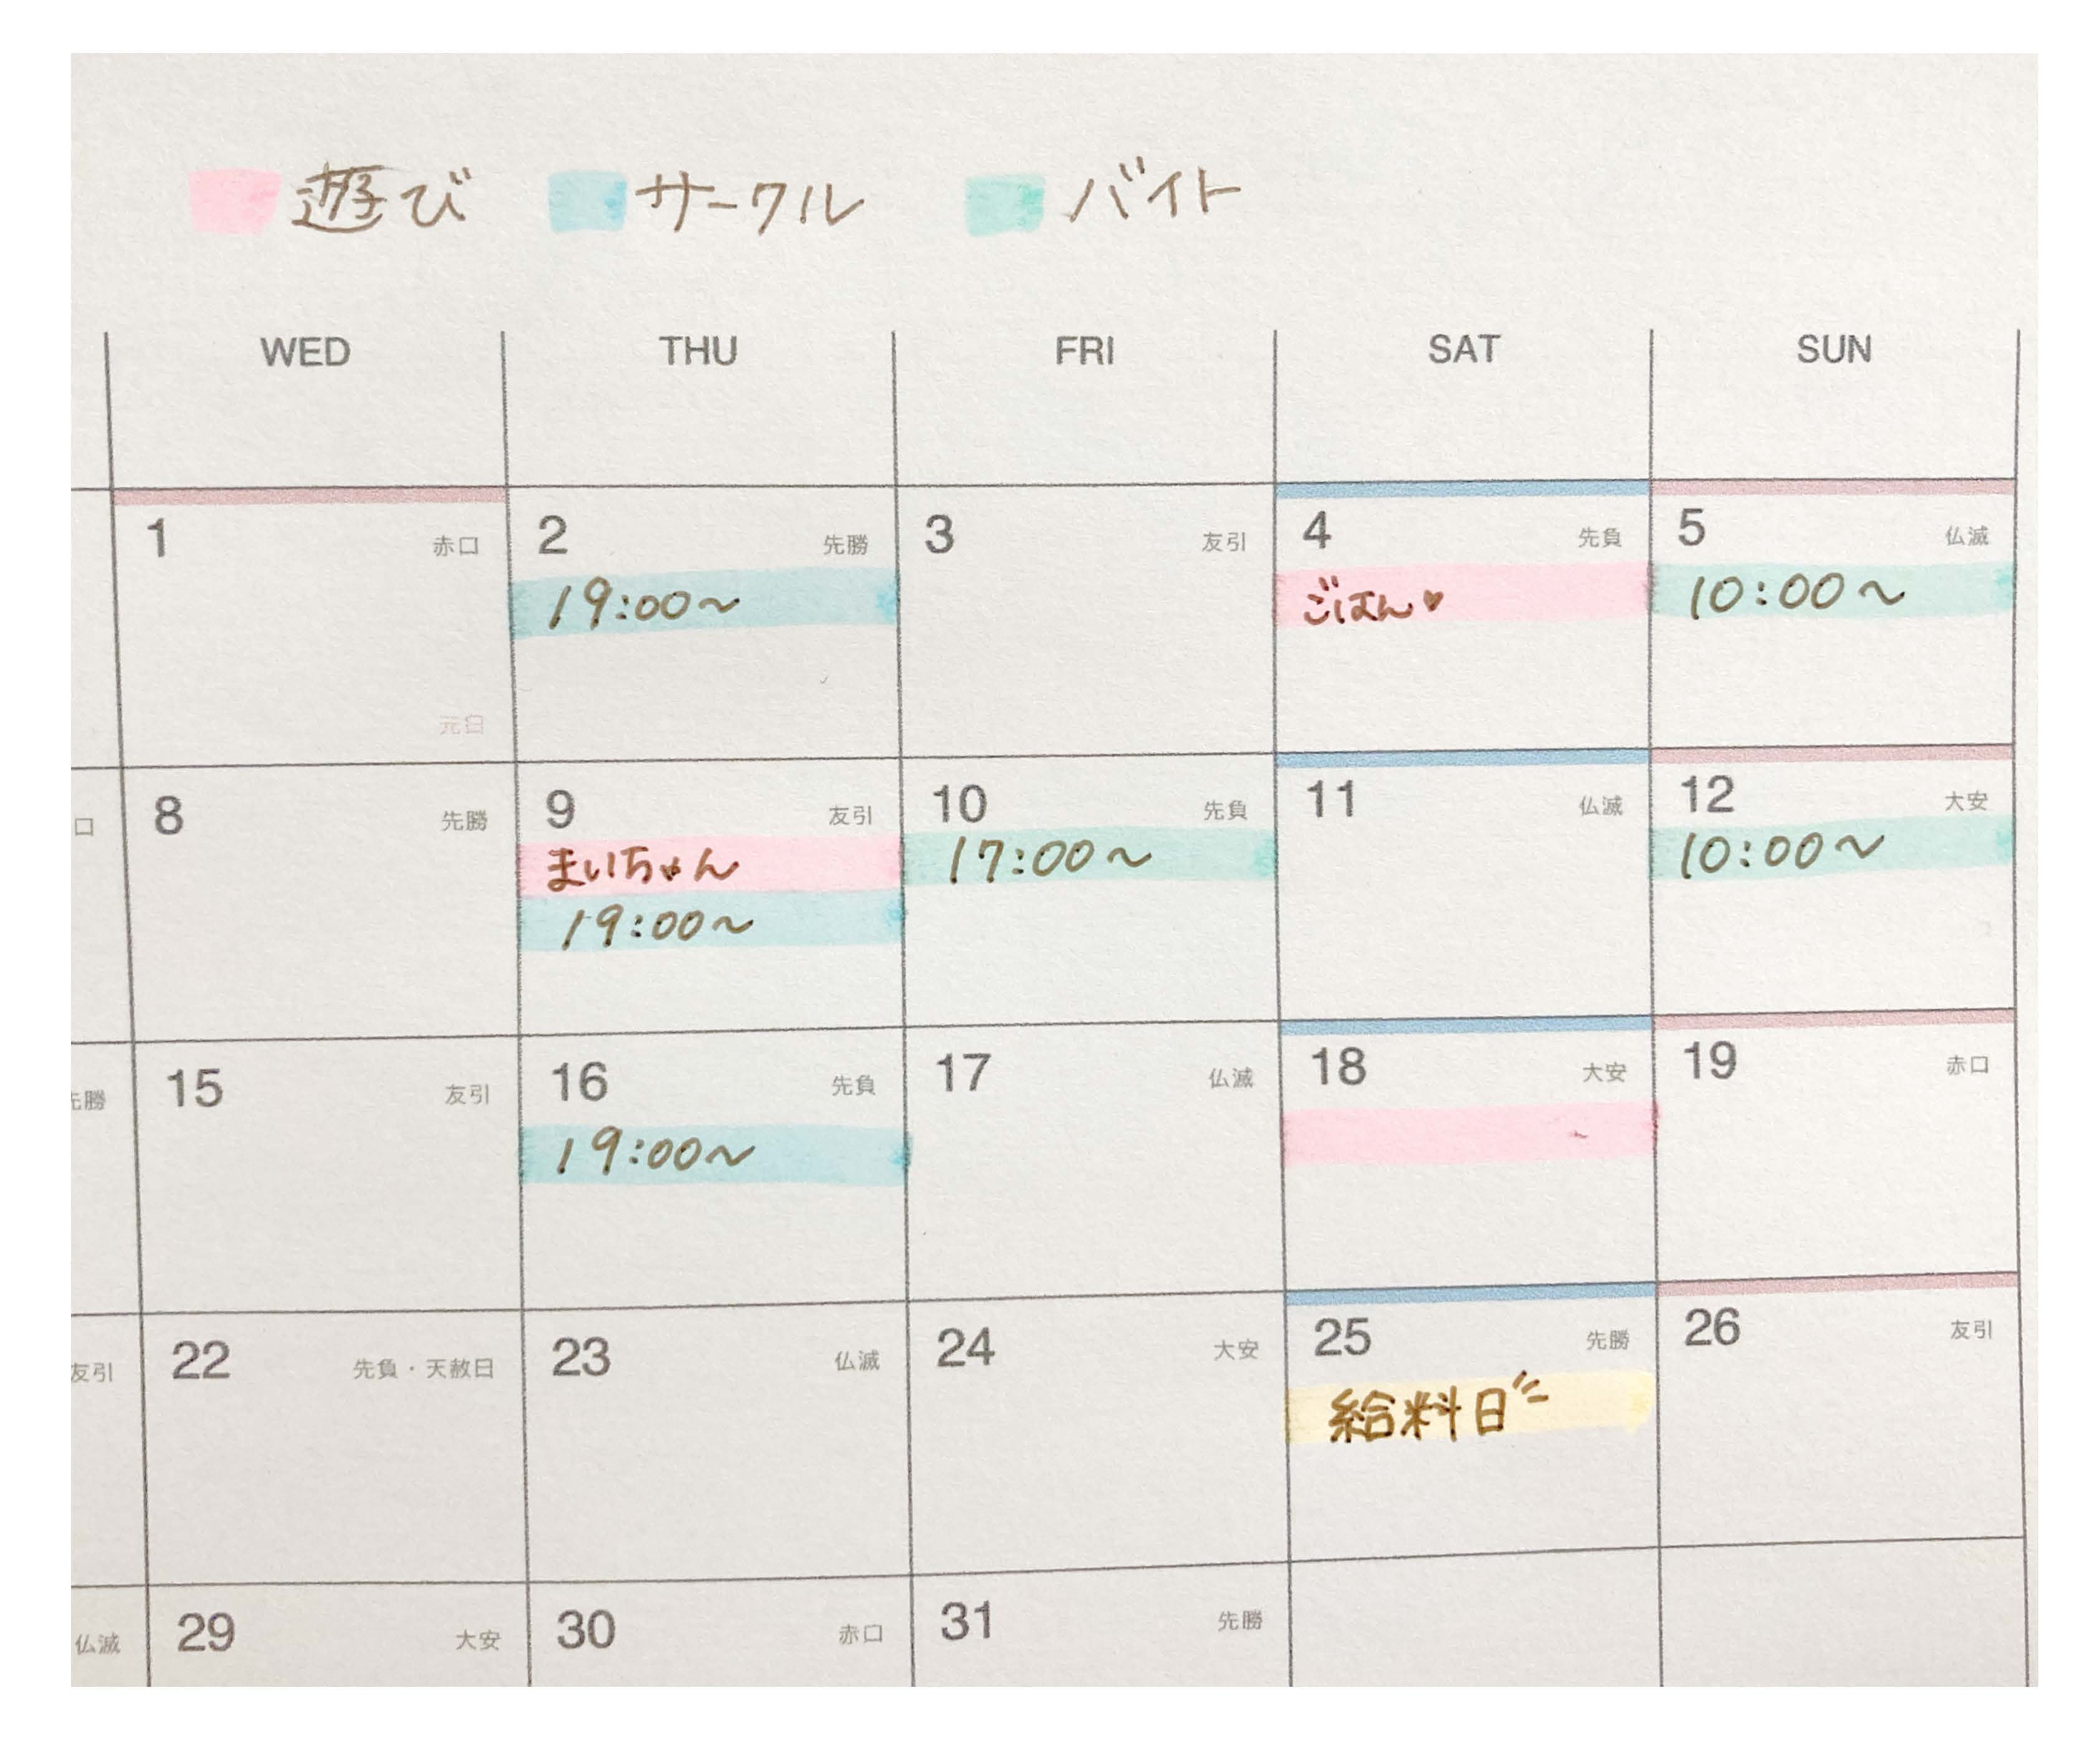 遊び サークル バイト
WED THU FRI SAT SUN
1 赤口 2 先勝 3 友引 4 先負 5 仏滅
19:00〜 ごはん♥ 10:00〜
元日
口 8 先勝 9 友引 10 先負 11 仏滅 12 大安
まいちゃん 17:00〜 10:00〜
19:00〜
先勝 15 友引 16 先負 17 仏滅 18 大安 19 赤口
19:00〜
友引 22 先負・天赦日 23 仏滅 24 大安 25 先勝 26 友引
給料日
仏滅 29 大安 30 赤口 31 先勝